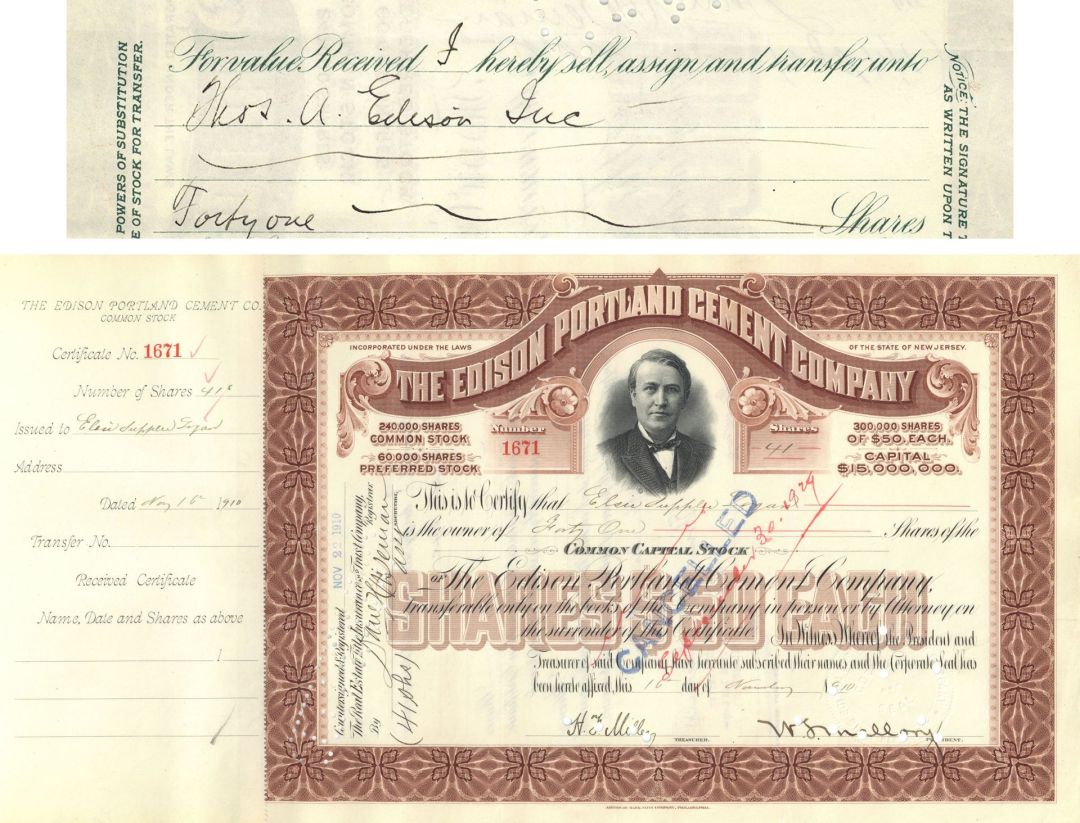 For value Received I hereby sell, assign and transfer unto
Thos. A. Edison Inc
Forty one Shares
POWERS OF SUBSTITUTION
E OF STOCK FOR TRANSFER.
NOTICE, THE SIGNATURE T
AS WRITTEN UPON T
THE EDISON PORTLAND CEMENT CO.
COMMON STOCK
Certificate No. 1671
Number of Shares 41
Issued to Elsie Supplee
Address
Dated Nov 16 1910
Transfer No.
Received Certificate
Name, Date and Shares as above
THE EDISON PORTLAND CEMENT COMPANY
INCORPORATED UNDER THE LAWS OF THE STATE OF NEW JERSEY.
240,000 SHARES
COMMON STOCK
60,000 SHARES
PREFERRED STOCK
Number
1671
Shares
41
300,000 SHARES
OF $50. EACH.
CAPITAL
$15,000,000.
This is to Certify that Elsie Supplee
is the owner of Forty One Shares of the
COMMON CAPITAL STOCK
OF The Edison Portland Cement Company,
SHARES $50 EACH
transferable only on the books of the Company in person or by Attorney on
the surrender of this Certificate.
In Witness Whereof, the President and
Treasurer of said Company have hereunto subscribed their names and the Corporate Seal has
been hereto affixed, this 16 day of November 1910
CANCELLED
September 20-1929
Countersigned & Registered NOV 22 1910
The Real Estate Title Insurance & Trust Company,
Registrar
By
H. F. Miller
TREASURER.
W. S. Mallory
PRESIDENT.
AMERICAN BANK NOTE COMPANY, PHILADELPHIA.